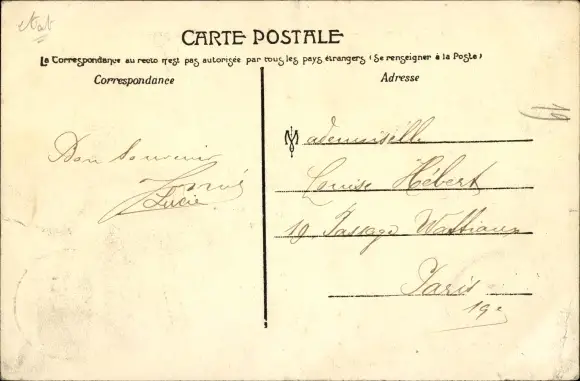 CARTE POSTALE
La Correspondance au recto n'est pas autorisée par tous les pays étrangers (Se renseigner à la Poste)
Correspondance
Adresse
Mademoiselle
Louise Hébert
10 Passage Wattiaux
Paris
19e
Bon Souvenir
Lucie
19